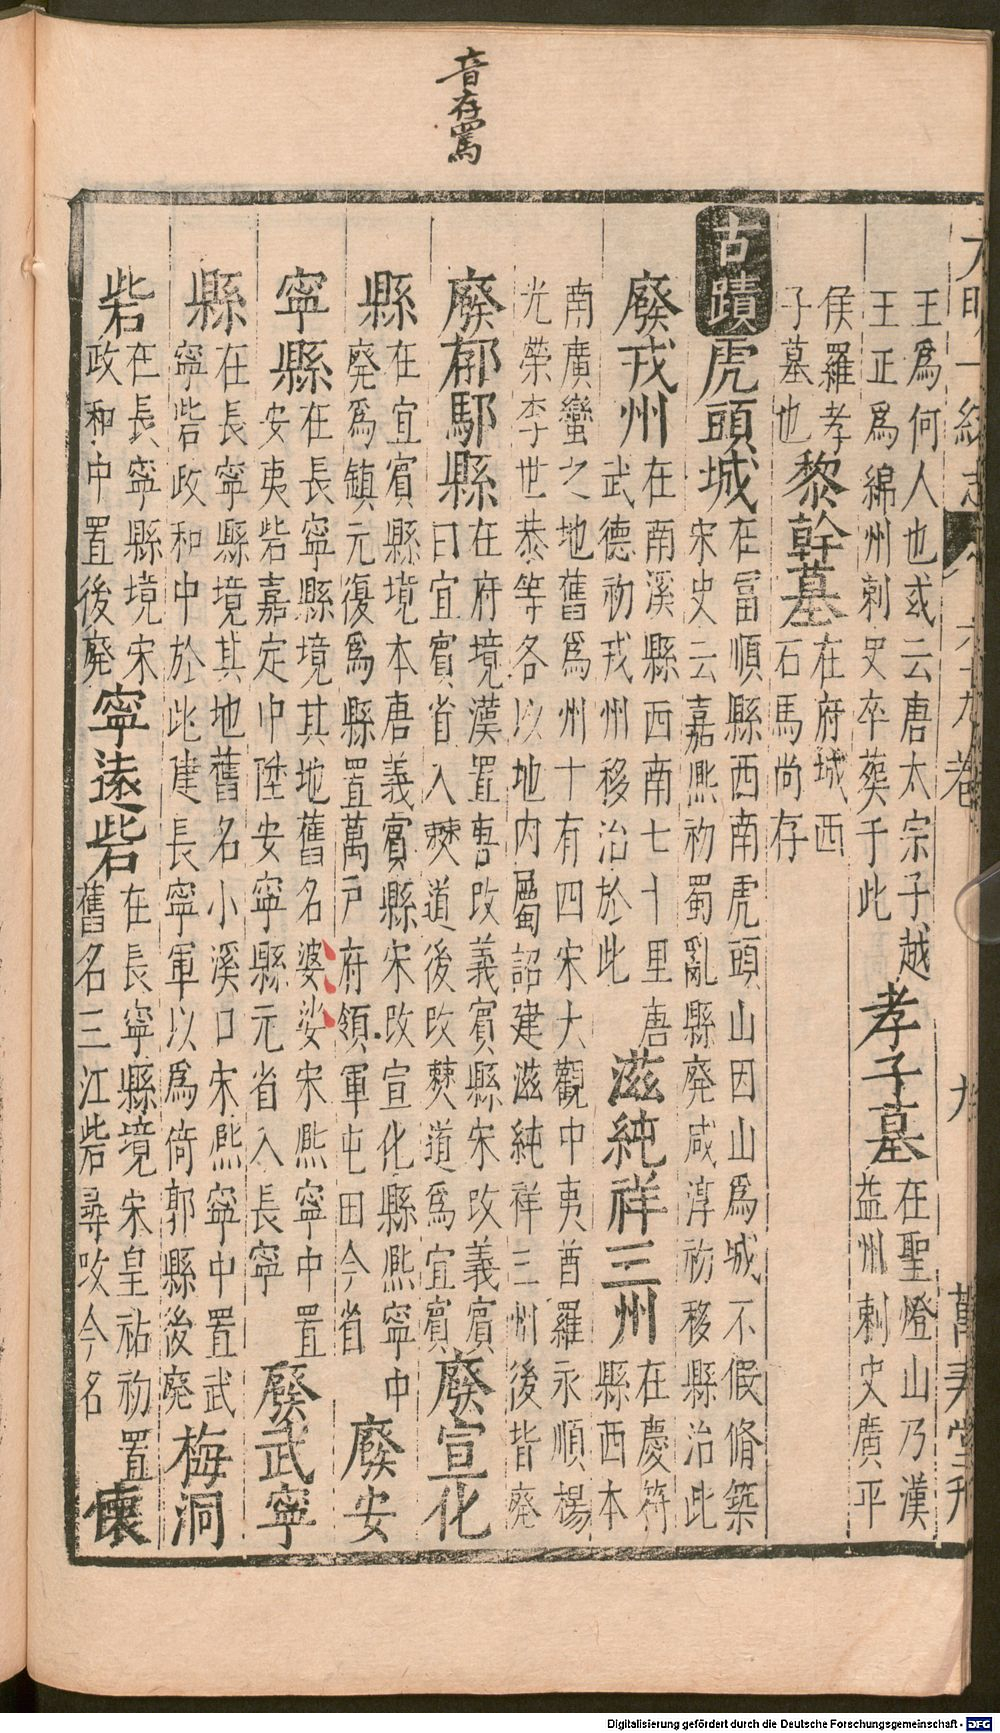 音存駡
大明一統志 六十九卷 九 萬壽堂刊
王爲何人也或云唐太宗子越
王正爲綿州刺史卒葬于此
孝子墓
在聖燈山乃漢
益州刺史廣平
侯羅孝
子墓也
黎幹墓
在府城西
石馬尚存
古蹟
虎頭城
在富順縣西南虎頭山因山爲城不假脩築
宋史云嘉熈初蜀亂縣廢咸淳初移縣治此
廢戎州
在南溪縣西南七十里唐
武德初戎州移治於此
滋純祥三州
在慶符
縣西本
南廣蠻之地舊爲州十有四宋大觀中夷酋羅永順楊
光榮李世恭等各以地内屬詔建滋純祥三州後皆廢
廢郁鄢縣
在府境漢置唐改義賓縣宋改義賓
曰宜賓省入僰道後改僰道爲宜賓
廢宣化
縣
在宜賓縣境本唐義賓縣宋改宣化縣熈寧中
廢爲鎮元復爲縣置萬戸府領軍屯田今省
廢安
寧縣
在長寧縣境其地舊名婆娑宋熈寧中置
安夷砦嘉定中陞安寧縣元省入長寧
廢武寧
縣
在長寧縣境其地舊名小溪口宋熈寧中置武
寧砦政和中於此建長寧軍以爲倚郭縣後廢
梅洞
砦
在長寧縣境宋
政和中置後廢
寧遠砦
在長寧縣境宋皇祐初置
舊名三江砦尋改今名
懷
Digitalisierung gefördert durch die Deutsche Forschungsgemeinschaft - DFG